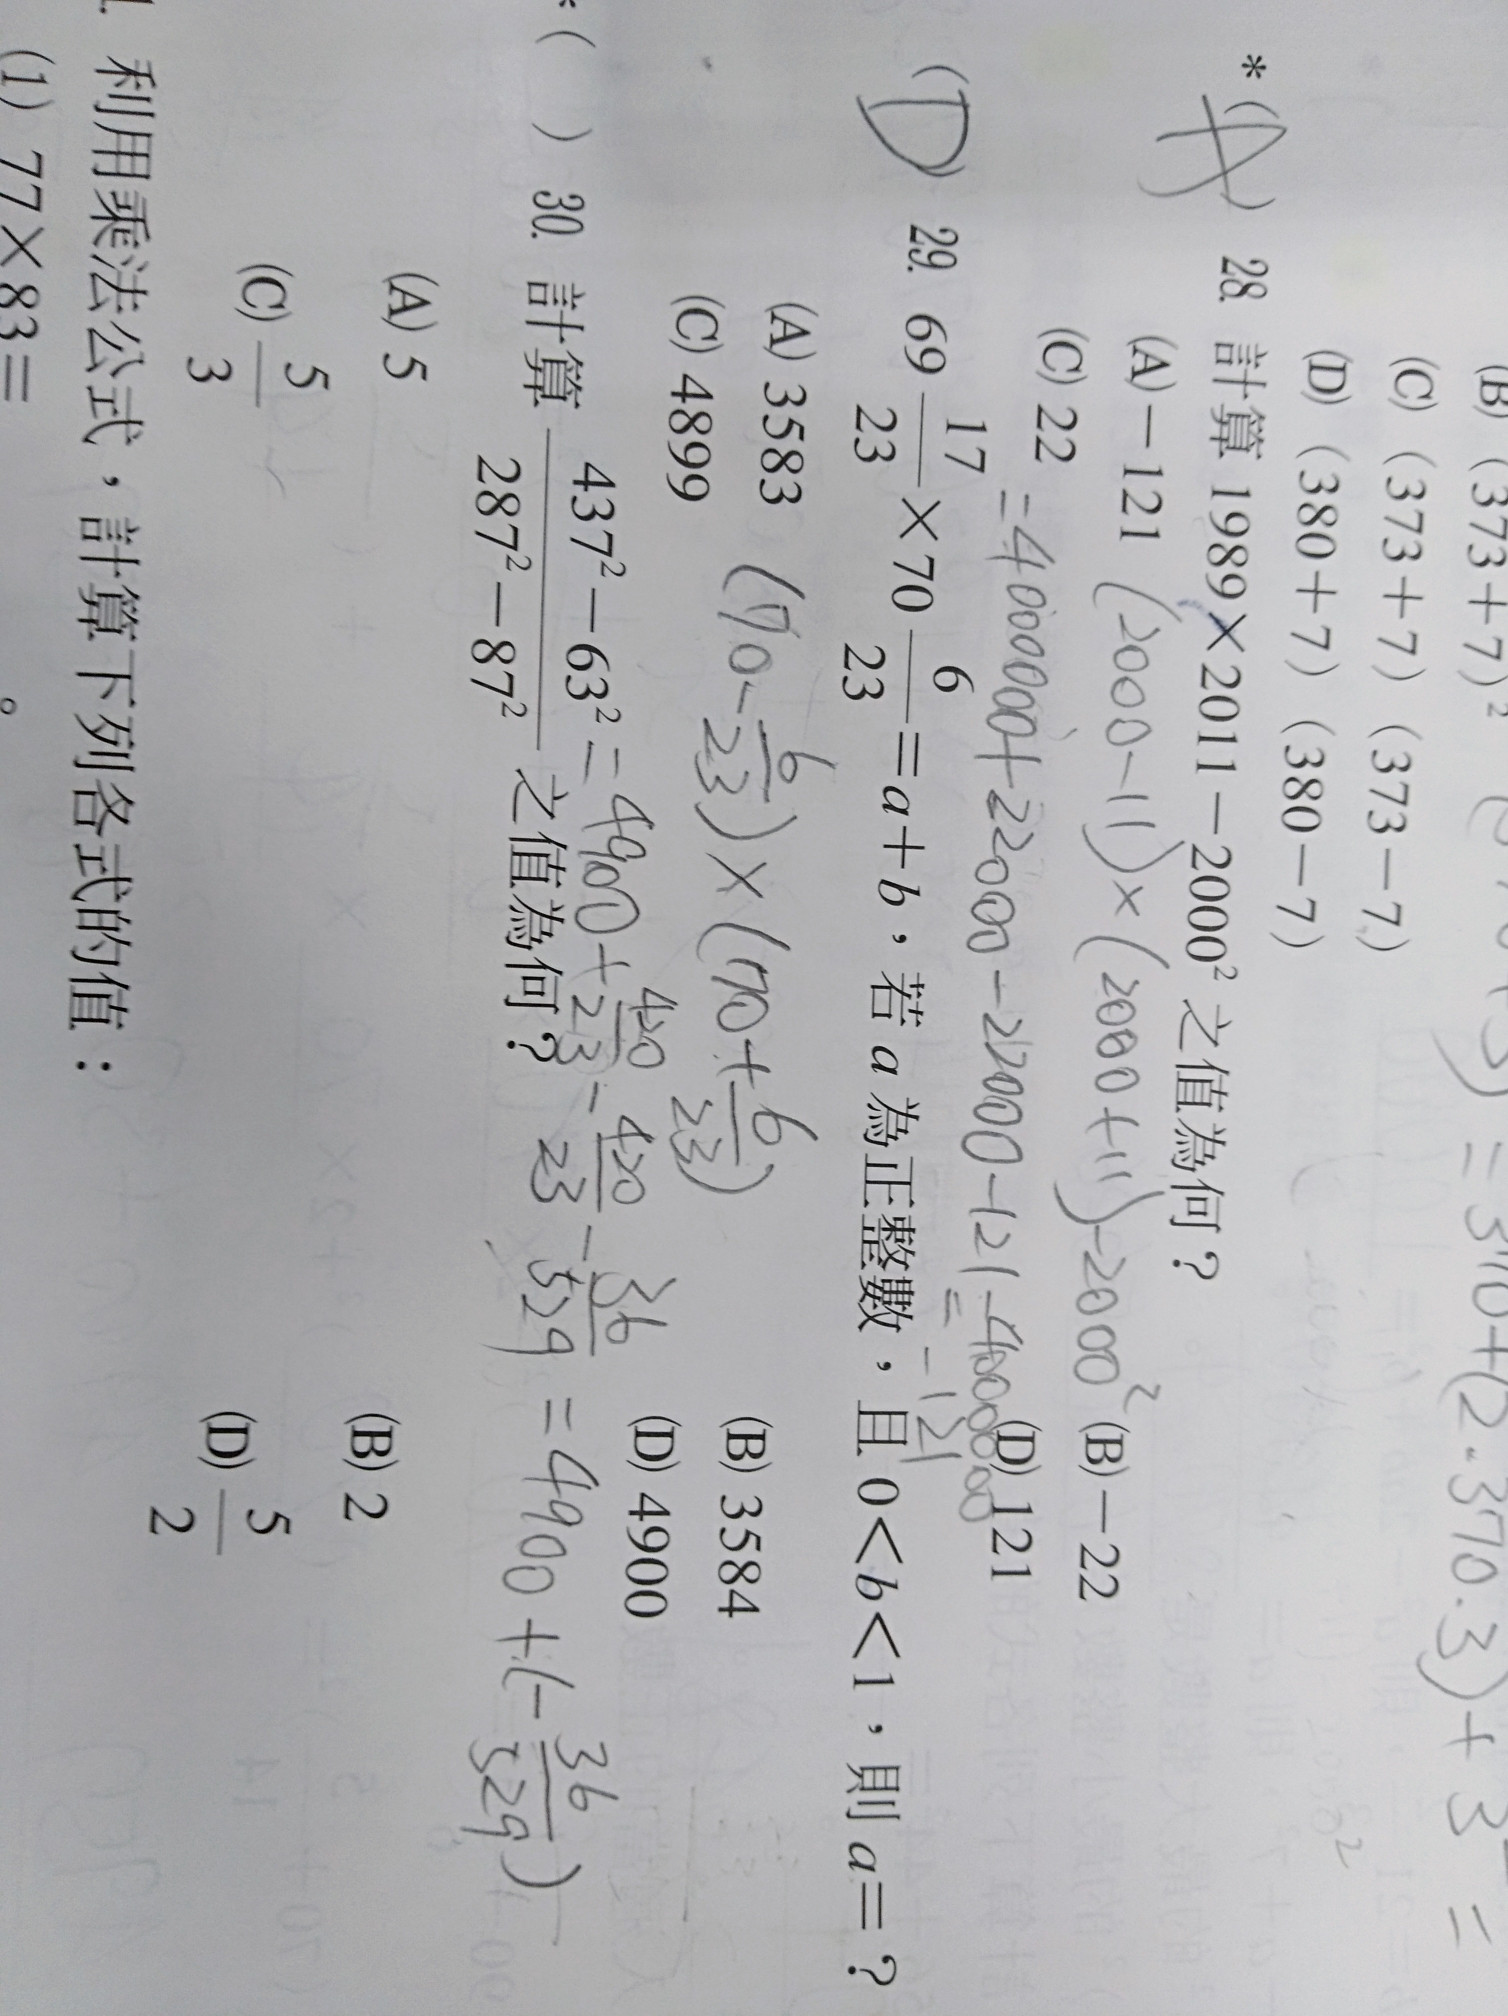 (B) (373+7)²
(C) (373+7)(373−7)
(D) (380+7)(380−7)
= 370+(2·370·3)+3 =
*(A) 28. 計算 1989×2011−2000² 之值為何？
(A) −121 (B) −22
(2000−11)×(2000+11)−2000²
(C) 22 (D) 121
=4000000+22000−22000−121−4000000
=−121
(D) 29. 69 17/23 ×70 6/23 =a+b，若 a 為正整數，且 0<b<1，則 a=？
(A) 3583 (B) 3584
(C) 4899 (D) 4900
(70−6/23)×(70+6/23)
=4900+420/23−420/23−36/529=4900+(−36/529)
*( ) 30. 計算 (437²−63²)/(287²−87²) 之值為何？
(A) 5 (B) 2
(C) 5/3 (D) 5/2
1. 利用乘法公式，計算下列各式的值：
(1) 77×83= 。